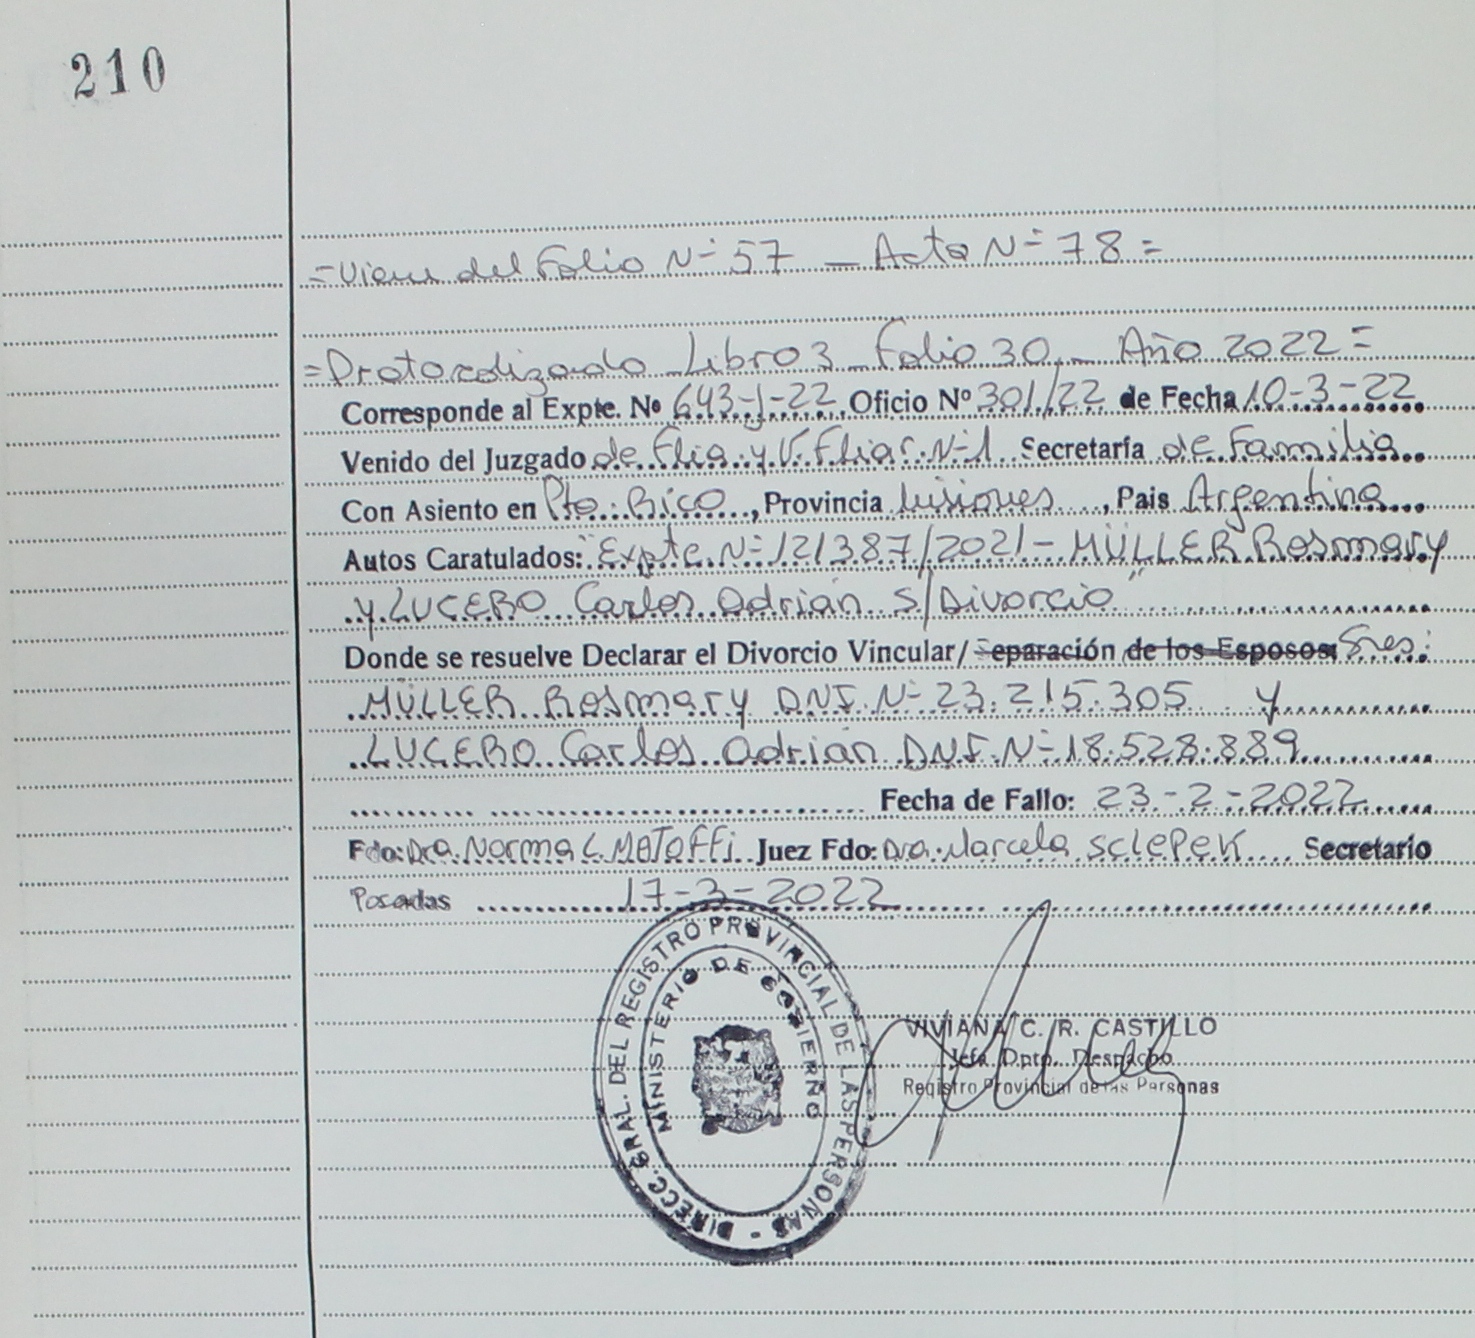 210
=Viene del Folio Nº 57 — Acta Nº 78=
=Protocolizado Libro 3 Folio 30 — Año 2022=
Corresponde al Expte. Nº 643-J-22 Oficio Nº 301/22 de Fecha 10-3-22
Venido del Juzgado de Flia. y V. Fliar. Nº 1 Secretaría de Familia
Con Asiento en Pto. Rico, Provincia Misiones, Pais Argentina
Autos Caratulados: "Expte. Nº 121387/2021 - MÜLLER Rosmary
y LUCERO Carlos Adrian s/Divorcio"
Donde se resuelve Declarar el Divorcio Vincular/ Separación de los Esposos: Sres:
MÜLLER Rosmary DNI. Nº 23.215.305 y
LUCERO Carlos Adrian DNI. Nº 18.528.889
Fecha de Fallo: 23-2-2022
Fdo: Dra. Norma C. MATOFFI Juez Fdo: Dra. Marcela SCLEPEK Secretario
Posadas 17-3-2022
DIRECC. GRAL. DEL REGISTRO PROVINCIAL DE LAS PERSONAS -
MINISTERIO DE GOBIERNO
VIVIANA C. R. CASTILLO
Jefa Dpto. Despacho
Registro Provincial de las Personas